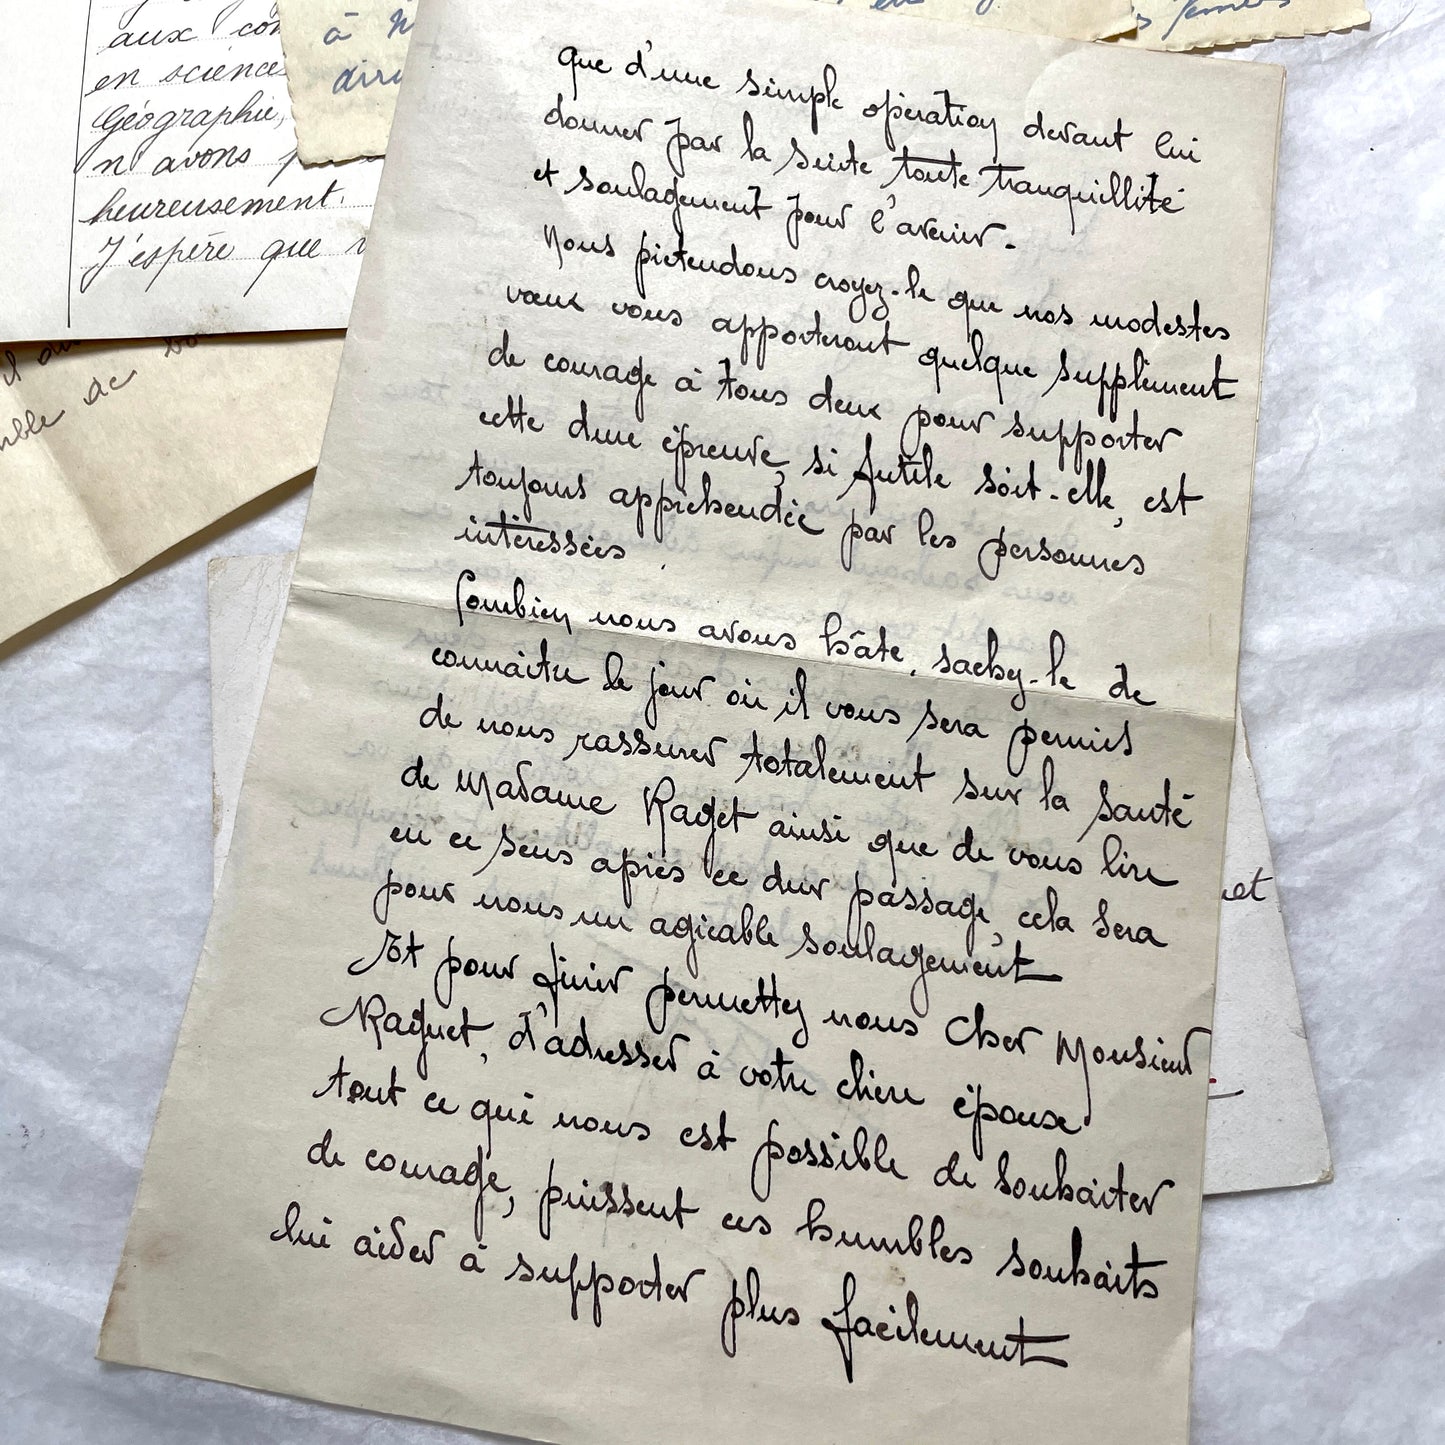 aux con
en sciences
Géographie,
n'avons p
heureusement.
J'espère que v
à N
diri
en
il au
mble de bo
que d'une simple opération devant lui
donner par la suite toute tranquillité
et soulagement pour l'avenir.
Nous prétendons croyez-le que nos modestes
vœux vous apporteront quelque supplément
de courage à tous deux pour supporter
cette dure épreuve, si futile soit-elle, est
toujours appréhendée par les personnes
intéressées.
Combien nous avons hâte, sachez-le de
connaitre le jour où il vous sera permis
de nous rassurer totalement sur la santé
de Madame Raget ainsi que de vous lire
en ce sens après ce dur passage, cela sera
pour nous un agréable soulagement
Et pour finir permettez nous Cher Monsieur
Raguet, d'adresser à votre chère épouse
tout ce qui nous est possible de souhaiter
de courage, puissent ces humbles souhaits
lui aider à supporter plus facilement
uet